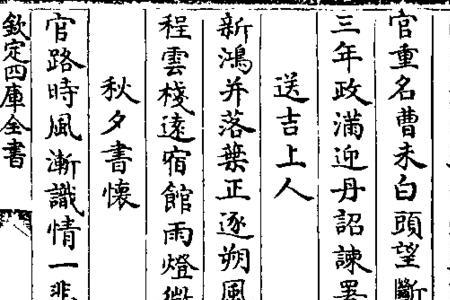 官重名曹未白頭望斷
三年政滿迎丹詔諫
送吉上人
新鴻并落葉正逐朔風
程雲棧逺宿館雨燈
秋夕書懷
官路時風漸識情一悲
欽定四庫全書